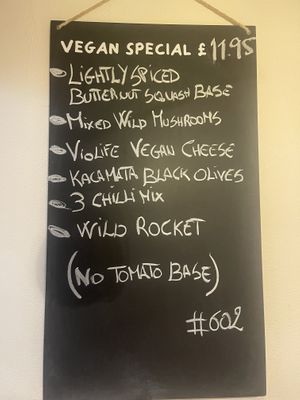 VEGAN SPECIAL £11.95
LIGHTLY SPICED
BUTTERNUT SQUASH BASE
MIXED WILD MUSHROOMS
VIOLIFE VEGAN CHEESE
KALAMATA BLACK OLIVES
3 CHILLI MIX
WILD ROCKET
(NO TOMATO BASE)
#602